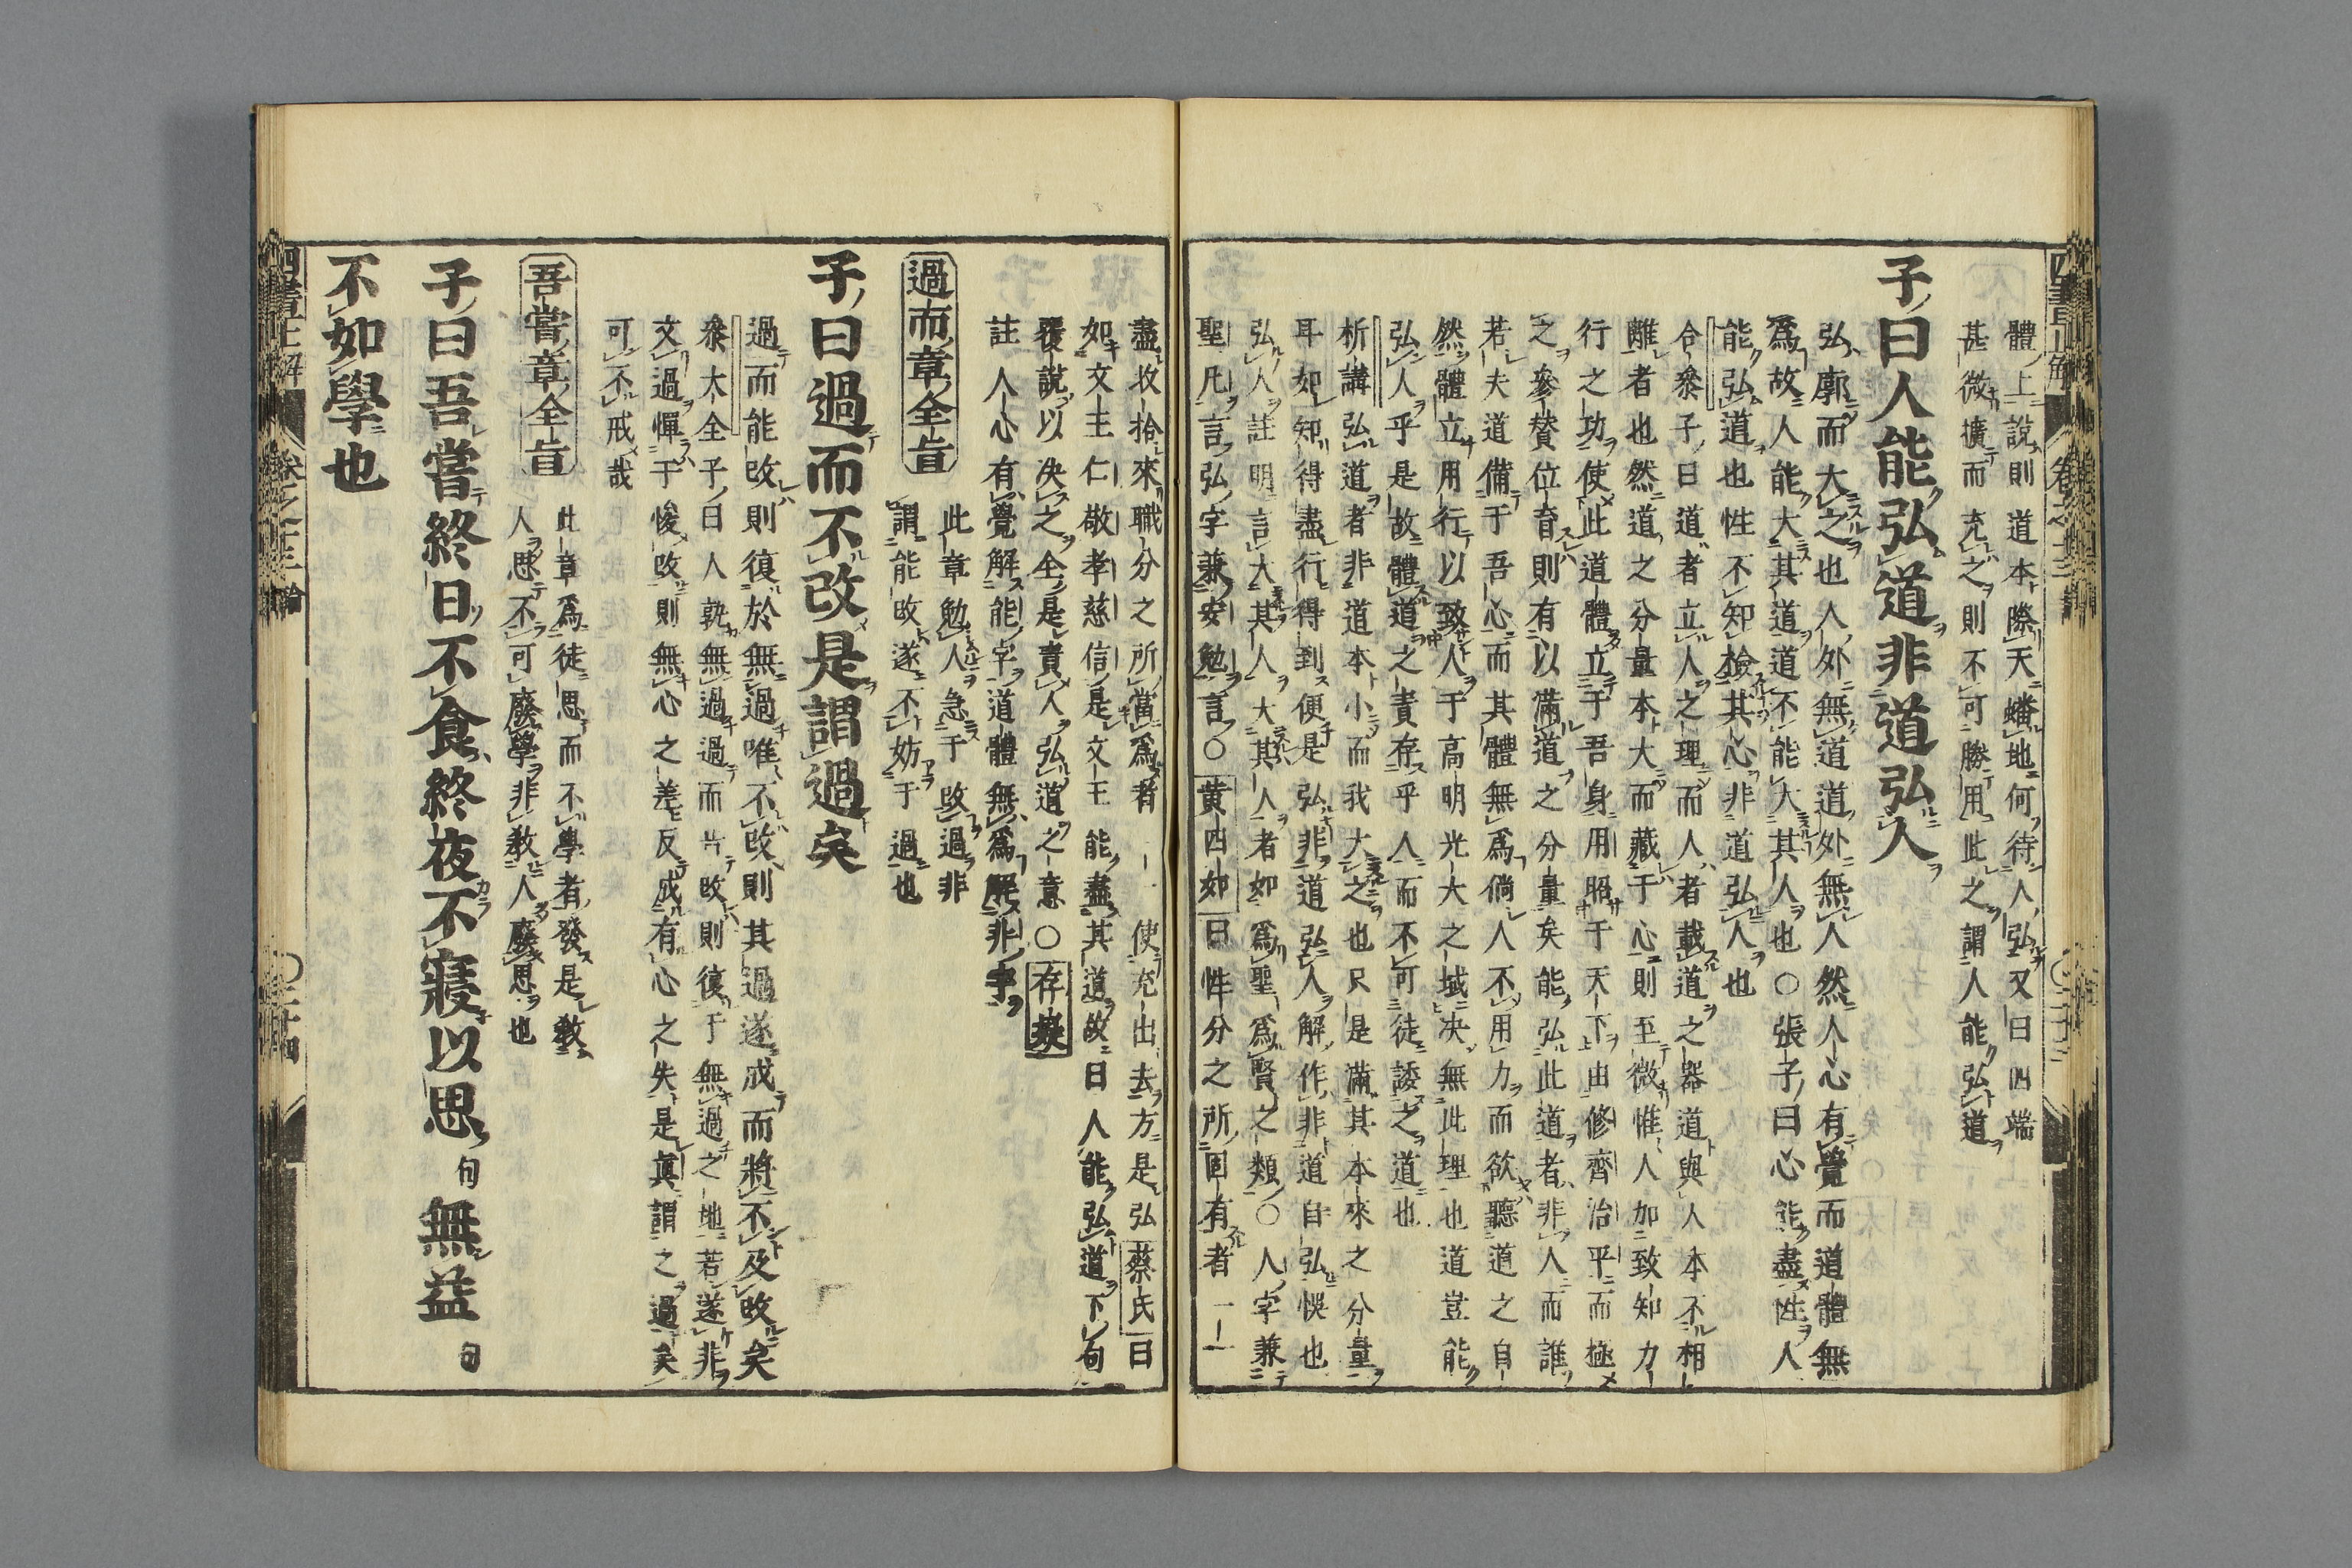 體上說則道本際天蟠地何待人弘又曰四端
甚微擴而充之則不可勝用此之謂人能弘道
子曰人能弘道非道弘人
弘廓而大之也人外無道道外無人然人心有覺而道體無
爲故人能大其道道不能大其人也○張子曰心能盡性人
能弘道也性不知檢其心非道弘人也
合衆子曰道者立人之理而人者載道之器道與人本不相
離者也然道之分量本大而藏于心則至微惟人加致知力
行之功使此道體立于吾身用昭于天下由修齊治平而極
之參贊位育則有以滿道之分量矣能弘此道者非人而誰
若夫道備于吾心而其體無爲倘人不用力而欲聽道之自
然體立用行以致人于高明光大之域决無此理也道豈能
弘人乎是故體道之責存乎人而不可徒諉之道也
析講弘道者非道本小而我大之也只是滿其本來之分量
耳如知得盡行得到便是弘非道弘人解作非道自弘悞也
弘人註明言大其人大其人者如爲聖爲賢之類○人字兼
聖凡言弘字兼安勉言○黄四如曰性分之所固有者一一
盡收拾來職分之所當爲者一一使充出去方是弘蔡氏曰
如文王仁敬孝慈信是文王能盡其道故曰人能弘道下句
覆說以决之全是責人弘道之意○存疑
註人心有覺解能字道體無爲解非字
過而章全旨
此章勉人急于改過非
謂能改遂不妨于過也
子曰過而不改是謂過矣
過而能改則復於無過唯不改則其過遂成而將不及改矣
叅大全予曰人孰無過過而片改則復于無過之地若遂非
文過憚于悛改則無心之差反成有心之失是眞謂之過矣
可不戒哉
吾嘗章全旨
此章爲徒思而不學者發是敎
人思不可廢學非敎人廢思也
子曰吾嘗終日不食終夜不寢以思句無益句
不如學也